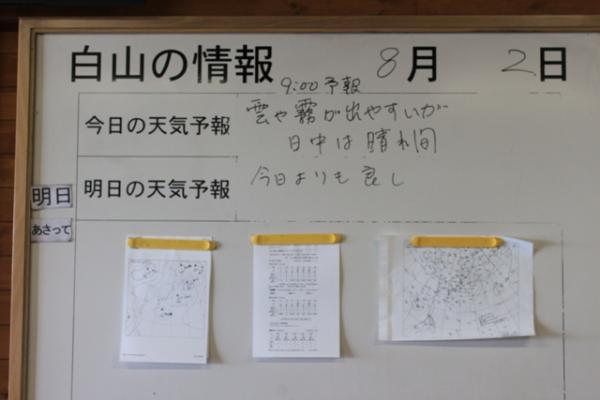 白山の情報 8月 2日
9:00予報
今日の天気予報 雲や霧が出やすいが
日中は晴れ間
明日の天気予報 今日よりも良し
明日
あさって